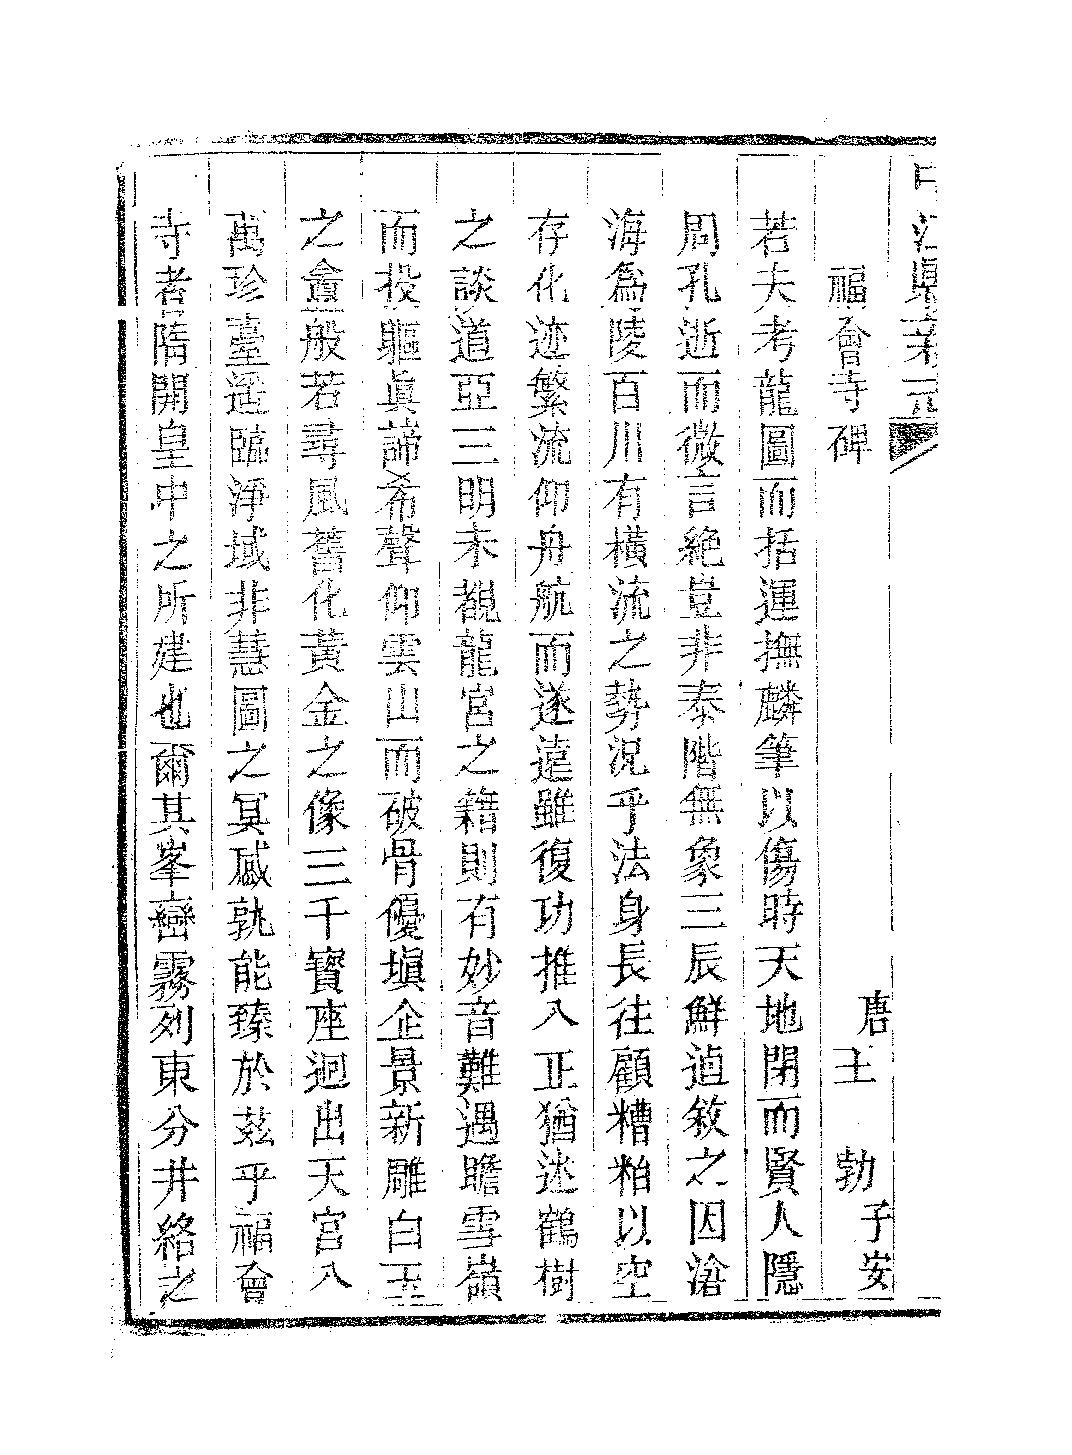 中江縣新志
福會寺碑
唐王勃子安
若夫考龍圖而括運撫麟筆以傷時天地閉而賢人隱
周孔逝而微言絶豈非泰階無象三辰鮮逌敘之因滄
海為陵百川有橫流之勢況乎法身長往顧糟粕以空
存化迹繁流仰舟航而遂遠雖復功推入正猶迷鶴樹
之談道亞三明未覩龍宮之籍則有妙音難遇瞻雪嶺
而投軀眞諦希聲仰雲山而破骨優塡企景新雕白玉
之龕般若尋風舊化黃金之像三千寳座迥出天宮八
萬珍臺遥臨淨域非慧圖之冥感孰能臻於茲乎福會
寺者隋開皇中之所建也爾其峯巒霧列東分井絡之